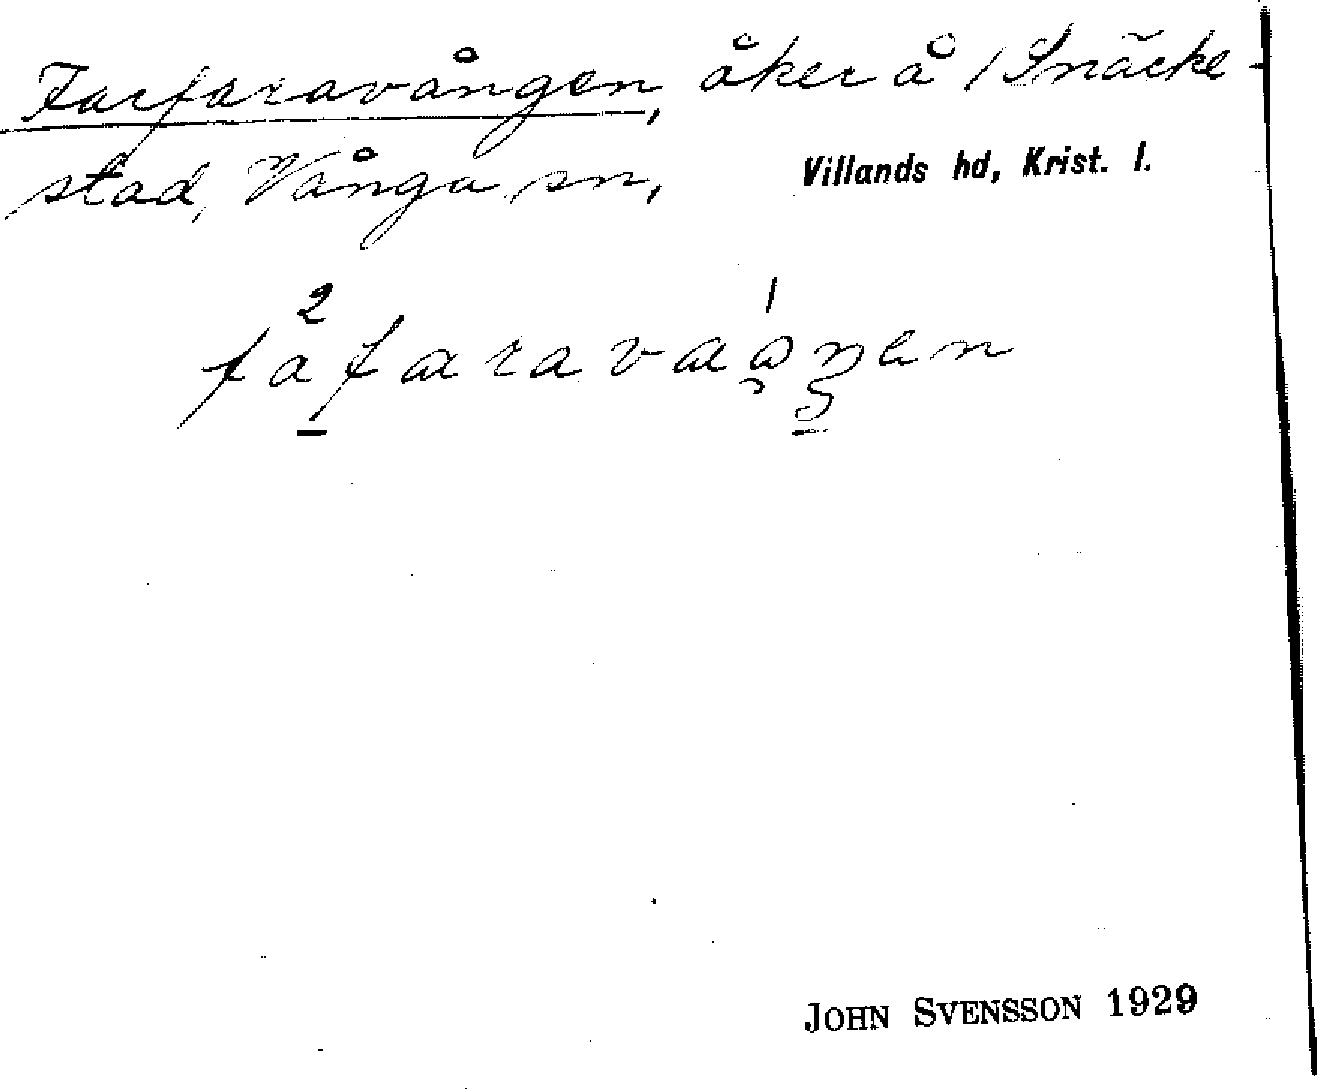 Farfaravången, åker å / Snäcke-
stad, Vånga sn, Villands hd, Krist. l.
JOHN SVENSSON 1929